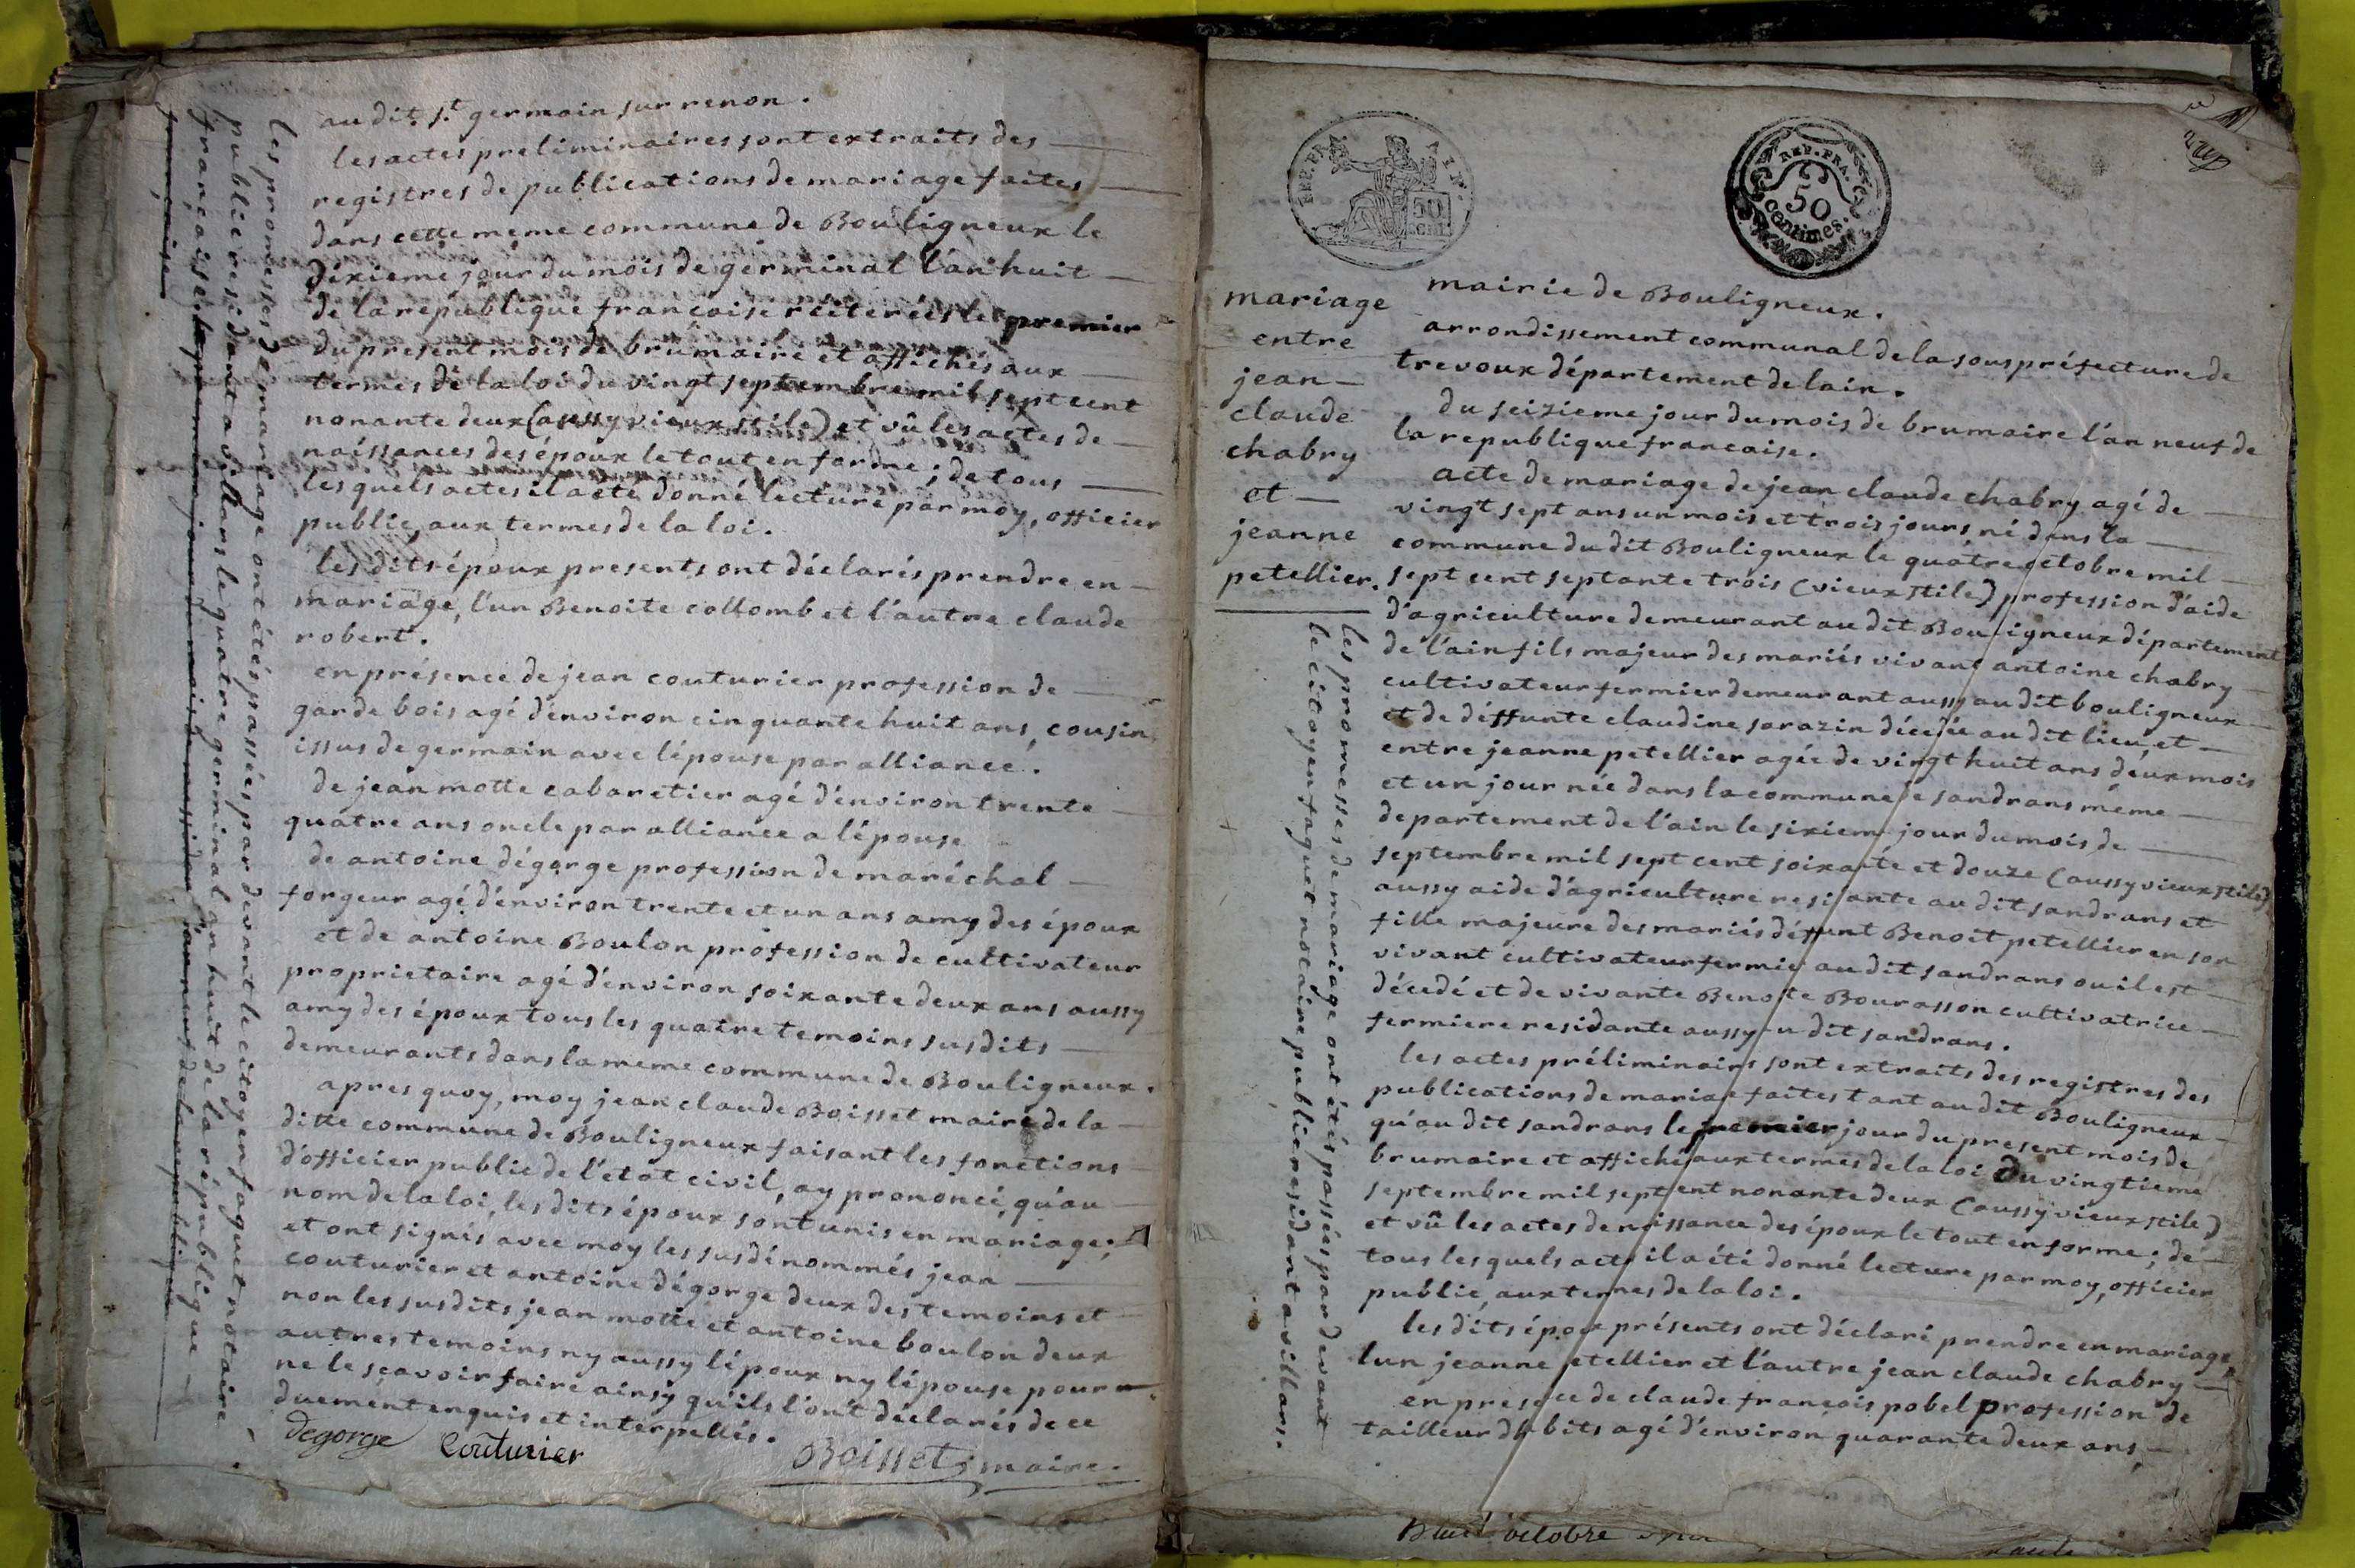 au dit st germain sur renon.
les actes preliminaires sont extraits des
registres de publications de mariage faites
dans cette même commune de Bouligneux le
dixieme jour du mois de gérminal l'an huit
de la republique françoise réiterées le premier
du present mois de brumaire et affichés aux
termes de la loi du vingt septembre mil sept cent
nonante deux (aussy vieux stile) et vû les actes de
naissances des époux le tout en forme ; de tous
les quels actes il a eté donné lecture par moy, officier
public, aux termes de la loi.
les dits époux presents ont déclarés prendre en
mariage, l'un Benoite collomb et l'autre claude
robert.
en présence de jean couturier profession de
garde bois agé d'environ cinquante huit ans, cousin
issus de germain avec l'épouse par alliance.
de jean motte cabaretier agé d'environ trente
quatre ans oncle par alliance a l'épouse
de antoine dégorge profession de maréchal
forgeur agé d'environ trente et un ans amy des époux
et de antoine Boulon profession de cultivateur
proprietaire agé d'environ soixante deux ans aussy
amy des époux tous les quatre temoins susdits
demeurants dans la meme commune de Bouligneux.
apres quoy, moy jean claude Boisset maire de la
ditte commune de Bouligneux faisant les fonctions
d'officier public de l'etat civil, ay prononcé, qu'au
nom de la loi, les dits époux sont unis en mariage;
et ont signés avec moy les susdénommés jean
couturier et antoine dégorge deux des temoins et
non les susdits jean motte et antoine boulon deux
autres temoins ny aussy l'époux ny l'épouse pour
ne le sçavoir faire ainsy qu'ils l'ont déclarés de ce
duement enquis et interpellés.
degorge Couturier Boisset, maire.
les promesses de mariage ont étés passées par devant le citoyen faguet notaire
public residant a villars le quatre germinal an huit de la république
françaises
REP. FRA.
50
REP. FRA.
50
centimes.
mariage
entre
jean
claude
chabry
et
jeanne
petellier.
mairie de Bouligneux.
arrondissement communal de la souspréfecture de
trevoux département de lain.
du seizieme jour du mois de brumaire l'an neuf de
la republique francaise.
acte de mariage de jean claude chabry agé de
vingt sept ans un mois et trois jours, né dans la
commune du dit Bouligneux le quatre octobre mil
sept cent septante trois (vieux stile) profession d'aide
d'agriculture demeurant au dit Bouligneux département
de l'ain fils majeur des mariés vivant antoine chabry
cultivateur fermier demeurant aussy au dit bouligneux
et de déffunte claudine sarazin décedée au dit lieu, et
entre jeanne petellier agée de vingt huit ans deux mois
et un jour née dans la commune de sandrans même
departement de l'ain le sixieme jour du mois de
septembre mil sept cent soixante et douze (aussy vieux stile)
aussy aide d'agriculture residante au dit sandrans et
fille majeure des mariés déffunt Benoit petellier en son
vivant cultivateur fermier au dit sandrans ou il est
décedé et de vivante Benoite Bourasson cultivatrice
fermiere residante aussy au dit sandrans.
les actes préliminairs sont extraits des registres des
publications de mariage faites tant au dit Bouligneux
qu'au dit sandrans le premier jour du present mois de
brumaire et affiché aux termes de la loi du vingtieme
septembre mil sept cent nonante deux (aussy vieux stile)
et vû les actes de naissance des époux le tout en forme ; de
tous les quels actes il a été donné lecture par moy, officier
public, aux termes de la loi.
les dits époux présents ont déclaré prendre en mariage,
l'un jeanne petellier et l'autre jean claude chabry
en presence de claude françois pobel profession de
tailleur d'habits agé d'environ quarante deux ans,
les promesses de mariage ont étés passées par devant
le citoyen faguet notaire public residant a villars.
octobre